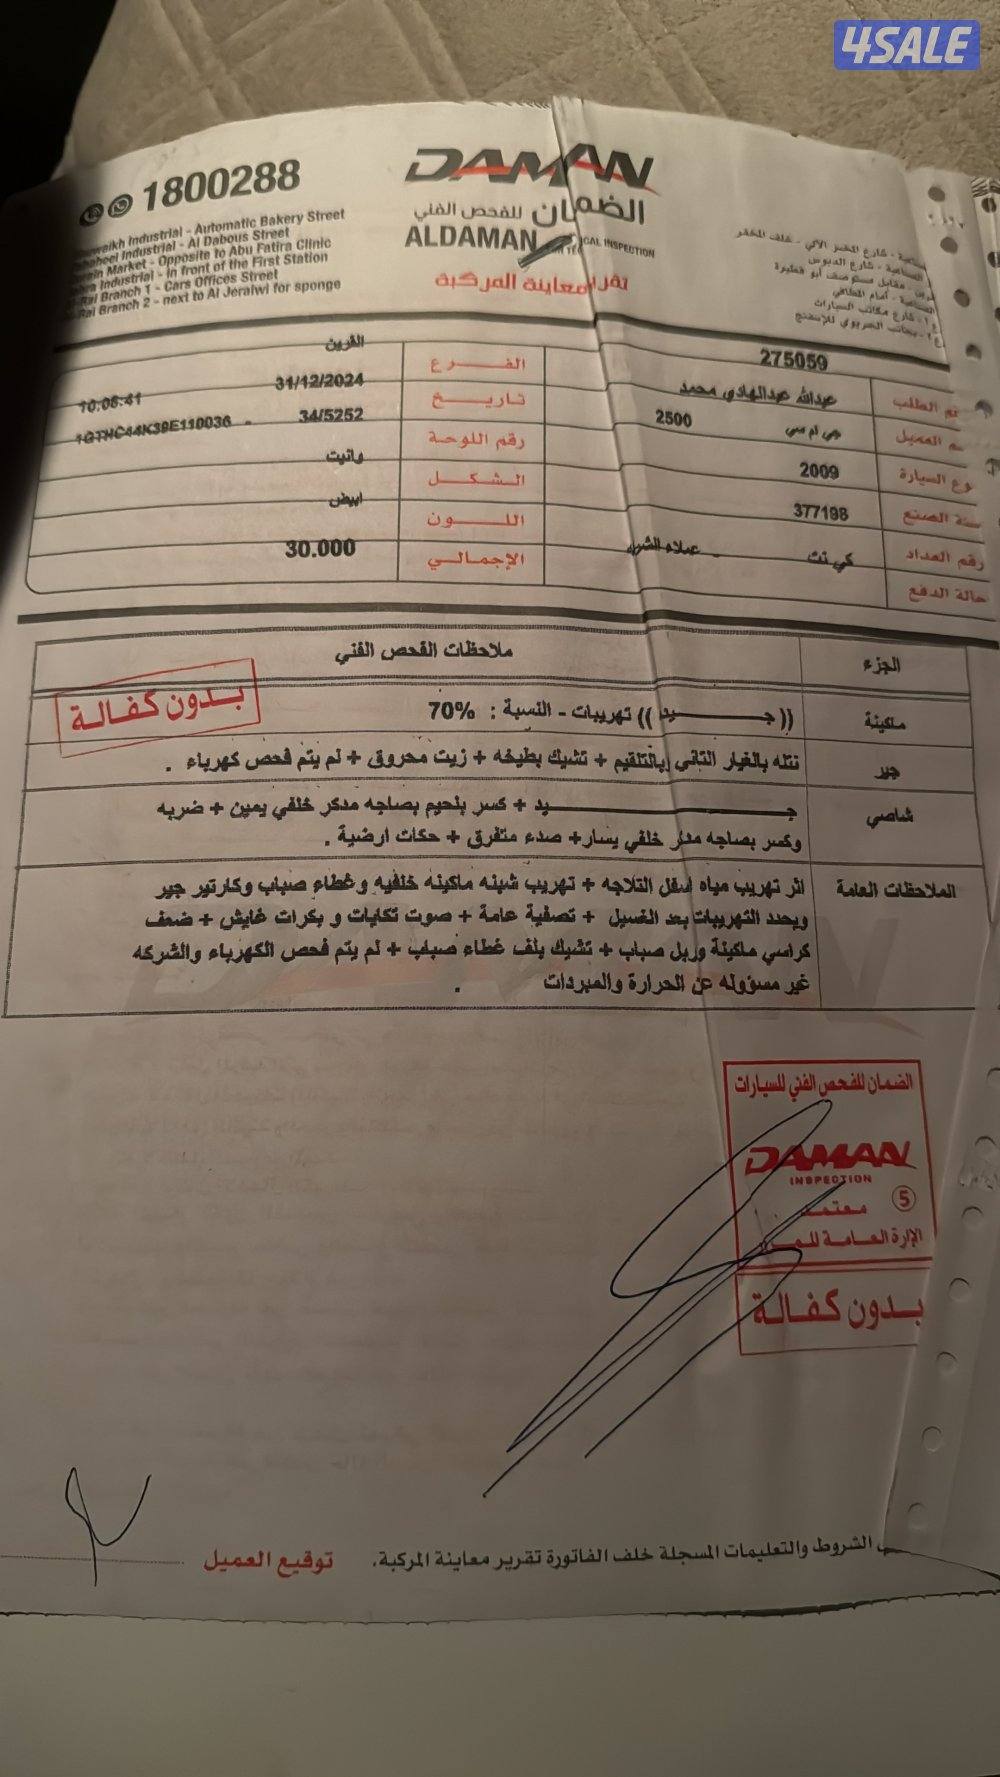 4SALE
1800288
DAMAN
الضمان للفحص الفني
ALDAMAN
CAL INSPECTION
تقرير معاينة المركبة
Industrial - Automatic Bakery Street
Industrial - Al Dabous Street
Market - Opposite to Abu Fatira Clinic
Industrial - In front of the First Station
Rai Branch 1 - Cars Offices Street
Rai Branch 2 - next to Al Jeralwi for sponge
شارع المخبز الآلي - خلف المخفر
شارع الدبوس
مقابل مستوصف أبو فطيرة
أمام المطافي
شارع مكاتب السيارات
بجانب الجريوي للإسفنج
رقم الطلب 275059 الفرع القرين
اسم العميل عبدالله عبدالهادي محمد تاريخ 31/12/2024 10:06:41
نوع السيارة جي ام سي 2500 رقم اللوحة 34/5252 - 1GTHC44K39E110036
سنة الصنع 2009 الشكل وانيت
رقم العداد 377198 اللون ابيض
حالة الدفع كي نت - عملاء الشركه الإجمالي 30.000
الجزء ملاحظات الفحص الفني
بدون كفالة
ماكينة ((جـــيد)) تهريبات - النسبة : 70%
جير نتله بالغيار الثاني وبالتلقيم + تشيك بطيخه + زيت محروق + لم يتم فحص كهرباء .
شاصي جـــيد + كسر بلحيم بصاجه مدكر خلفي يمين + ضربه
وكسر بصاجه مدكر خلفي يسار+ صدء متفرق + حكات ارضية .
الملاحظات العامة اثر تهريب مياه اسفل الثلاجه + تهريب شبنه ماكينه خلفيه وغطاء صباب وكارتير جير
ويحدد التهريبات بعد الغسيل + تصفية عامة + صوت تكايات و بكرات قايش + ضعف
كراسي ماكينة وربل صباب + تشيك بلف غطاء صباب + لم يتم فحص الكهرباء والشركه
غير مسؤوله عن الحرارة والمبردات .
الضمان للفحص الفني للسيارات
DAMAN
INSPECTION
5
معتمد
الإدارة العامة للمرور
بدون كفالة
الشروط والتعليمات المسجلة خلف الفاتورة تقرير معاينة المركبة. توقيع العميل